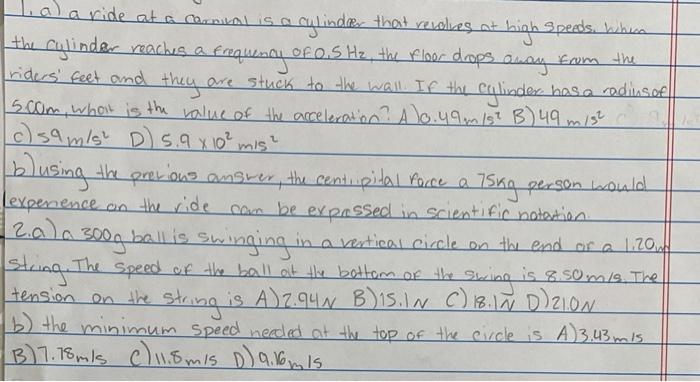 1. a) a ride at a carnival is a cylinder that revolves at high speeds. When
the cylinder reaches a frequency of 0.5 Hz, the floor drops away from the
riders' feet and they are stuck to the wall. If the cylinder has a radius of
5.00m, what is the value of the acceleration? A) 0.49 m/s² B) 49 m/s²
C) 59 m/s² D) 5.9 x 10² m/s²
b) using the previous answer, the centripital force a 75kg person would
experience on the ride can be expressed in scientific notation.
2. a) a 300g ball is swinging in a vertical circle on the end of a 1.20m
string. The speed of the ball at the bottom of the swing is 8.50 m/s. The
tension on the string is A) 2.94N B) 15.1N C) 18.1N D) 21.0N
b) the minimum speed needed at the top of the circle is A) 3.43 m/s
B) 7.78m/s C) 11.8 m/s D) 9.16 m/s